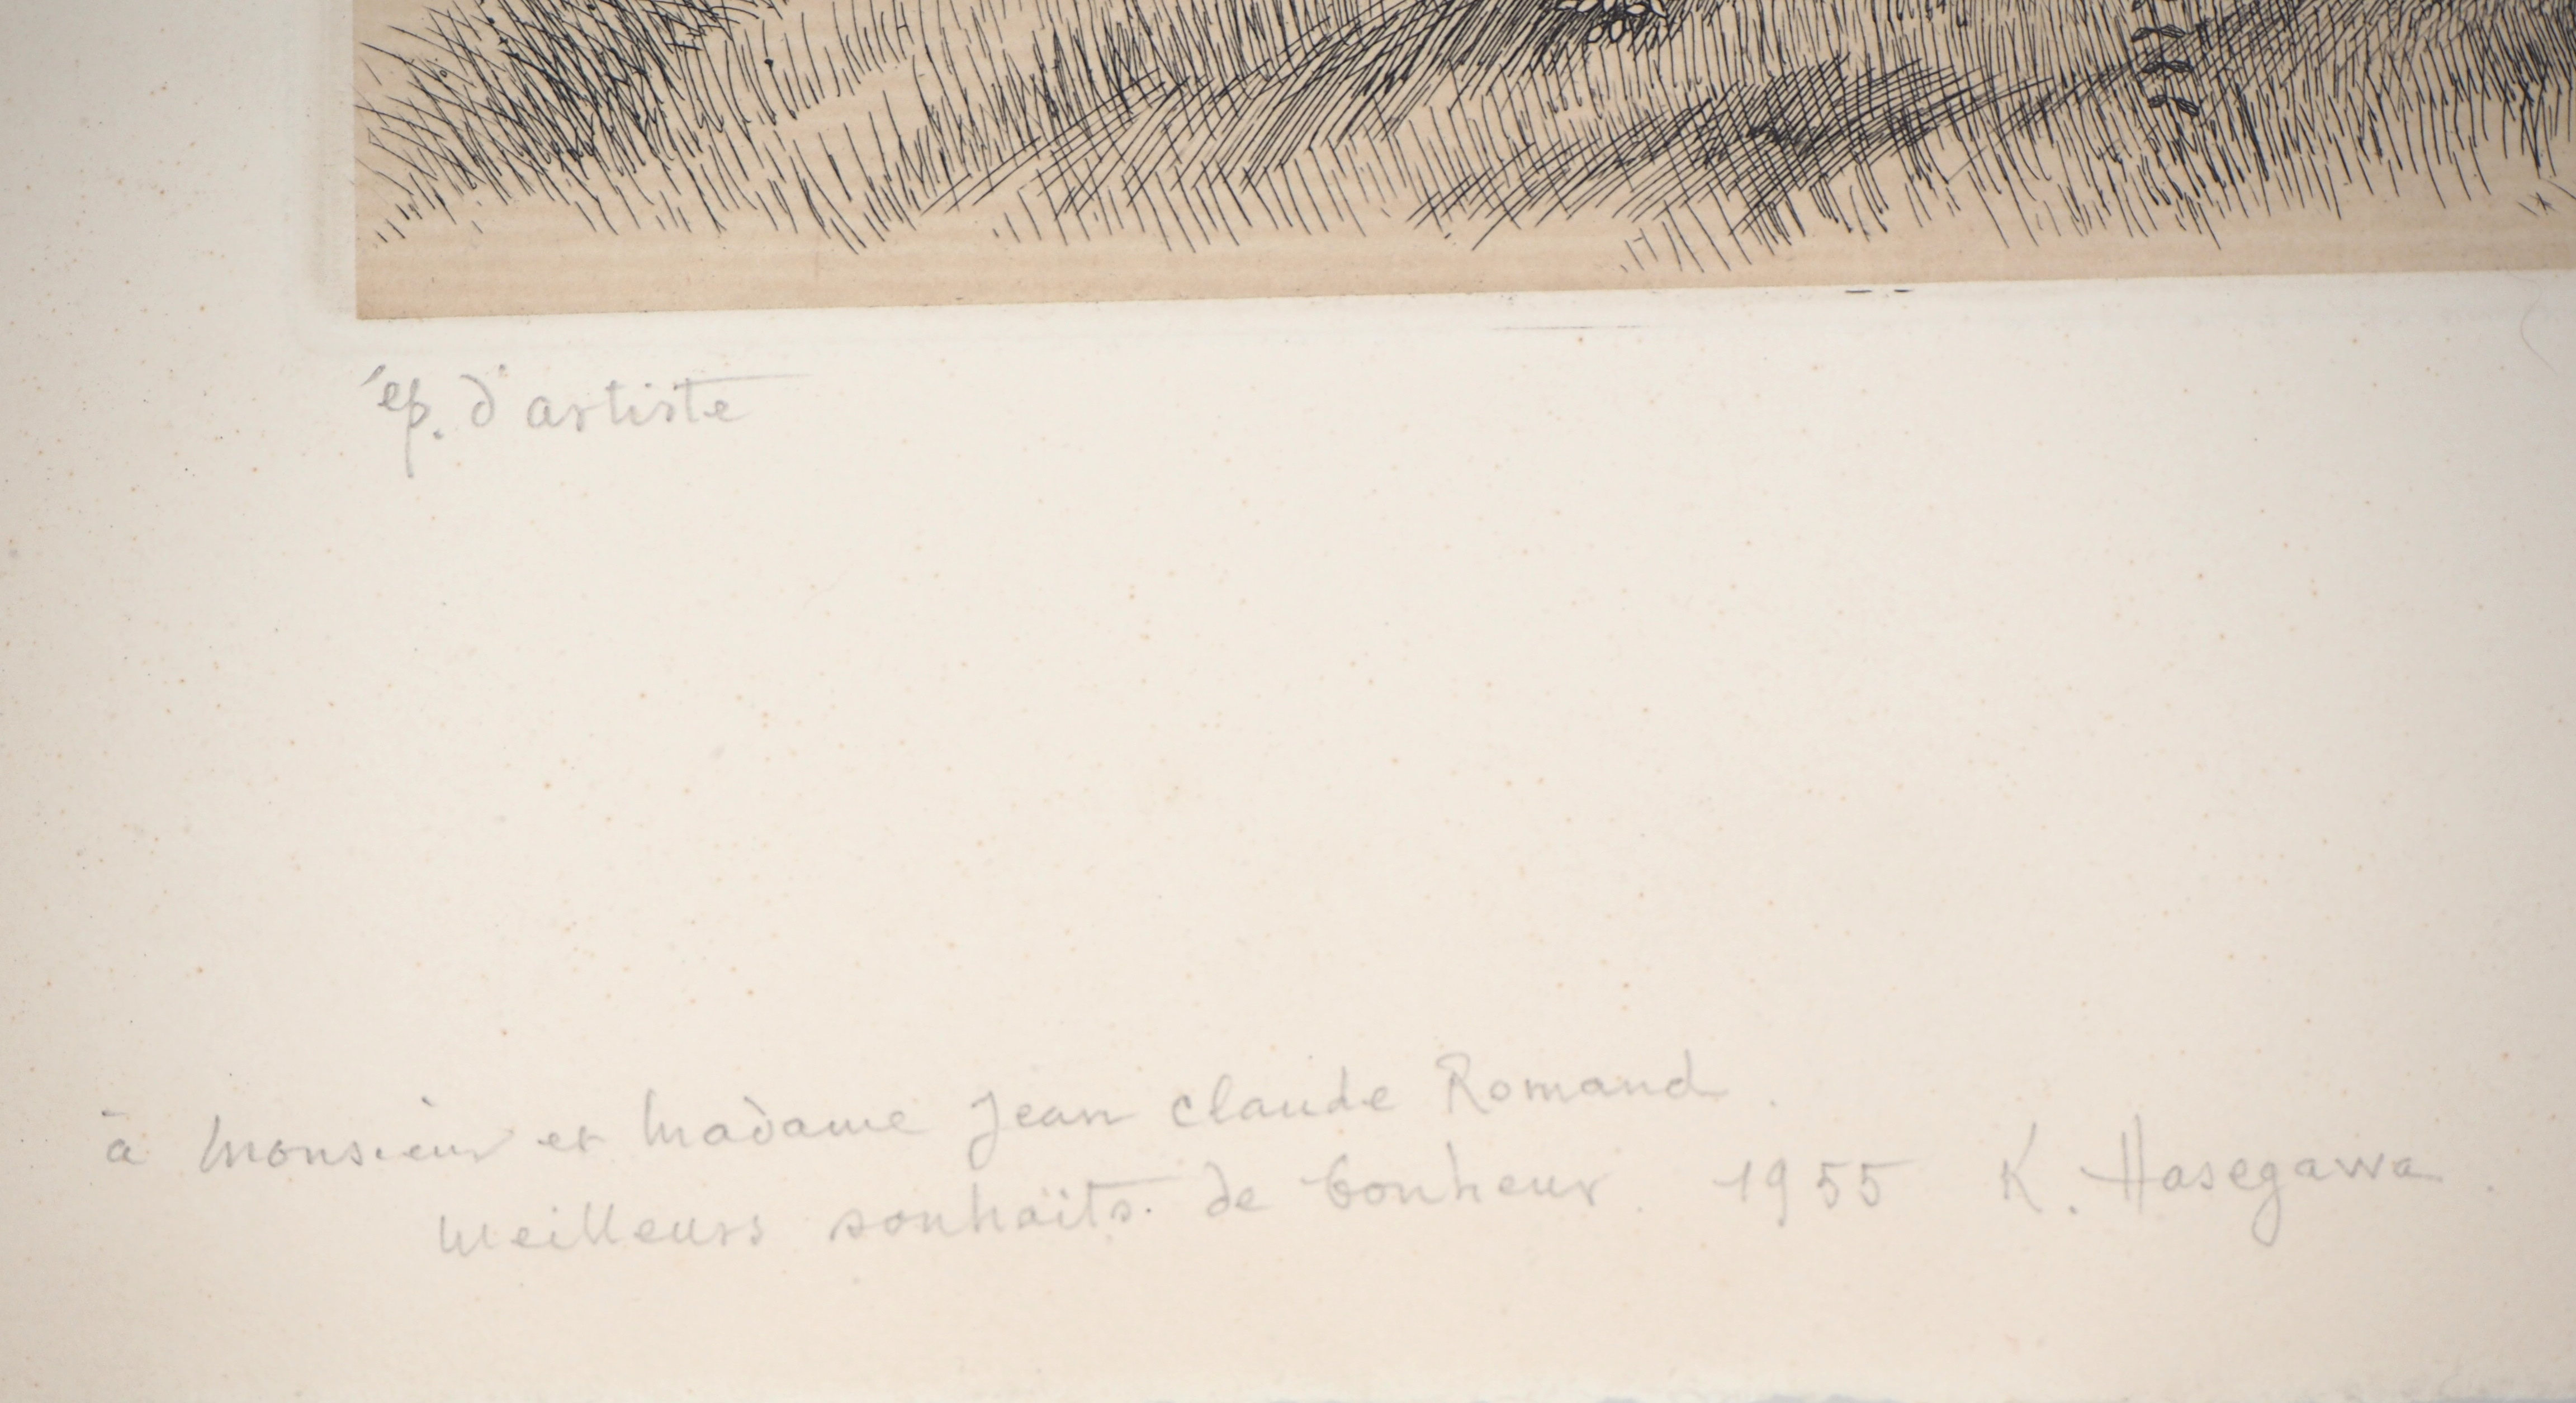 ép. d'artiste
à Monsieur et Madame Jean Claude Romand.
Meilleurs souhaits. de bonheur. 1955 K. Hasegawa.